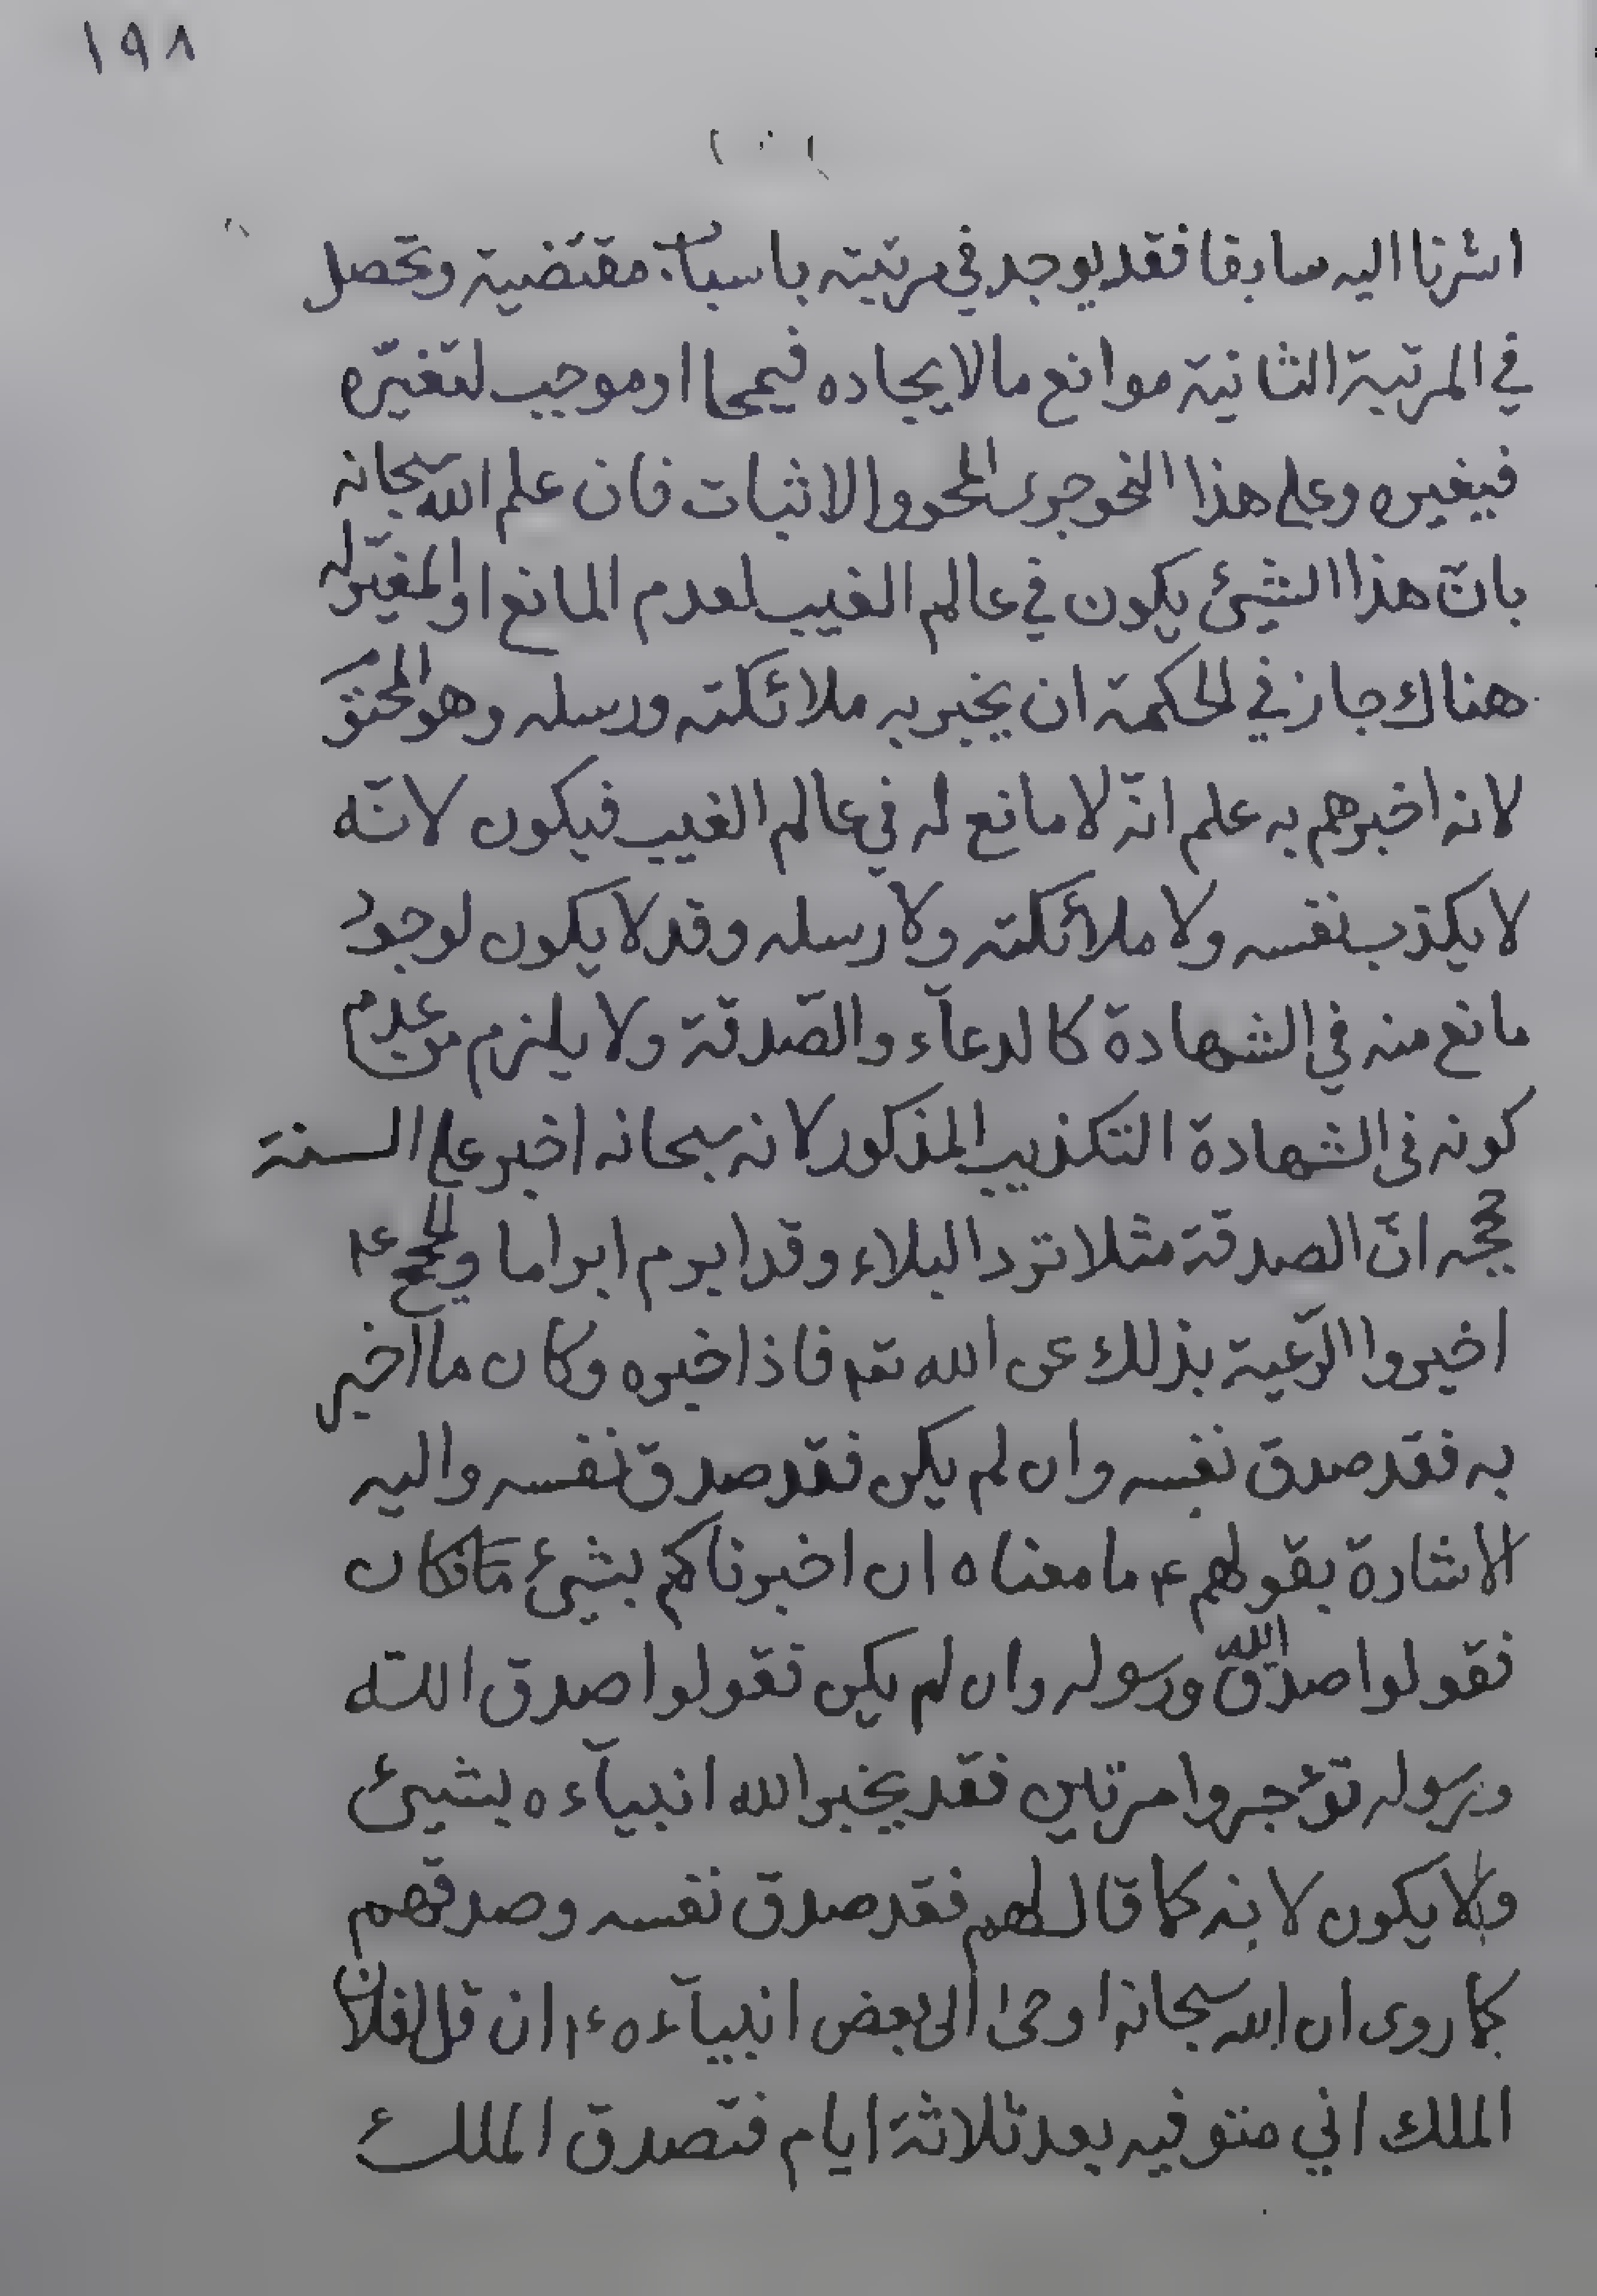 ١٩٨
اشرنا اليه سابقا فقد يوجد في مرتبته باسباب مقتضية وتحصل
في المرتبة الثانية موانع مالايجاده فيمحا اوموجب لتغيّره
فيغيره وعلى هذا النحو جرى المحو والاثبات فان علم الله سبحانه
بانّ هذا الشيئ يكون في عالم الغيب لعدم المانع او المغيّر له
هناك جاز في الحكمة ان يخبر به ملائكته ورسله وهو المحتوم
لانه اخبرهم به علم انّه لا مانع له في عالم الغيب فيكون لانّه
لا يكذب نفسه ولا ملائكته ولا رسله وقد لا يكون لوجود
مانع منه في الشهادة كالدعآء والصّدقة ولا يلزم من عدم
كونه في الشهادة التكذيب المذكور لانه سبحانه اخبر على السنة
حججه انّ الصدقة مثلا تردّ البلاء وقد ابرم ابراما والحجج ع
اخبروا الرّعية بذلك عن الله تعا فاذا خبره وكان ما اخبر
به فقد صدق نفسه وان لم يكن فقد صدق نفسه واليه
الاشارة بقولهم ع ما معناه ان اخبرناكم بشيئ مّا فكان
فقولوا صدق الله ورسوله وان لم يكن فقولوا صدق الله
ورسوله تؤجروا مرتين فقد يخبر الله انبيآءه بشيئ
ولا يكون لانه كما قال لهم فقد صدق نفسه وصدقهم
كما روى ان الله سبحانه اوحى الى بعض انبيآءه ع ان قل لفلان
الملك اني متوفيه بعد ثلاثة ايام فتصدق الملك